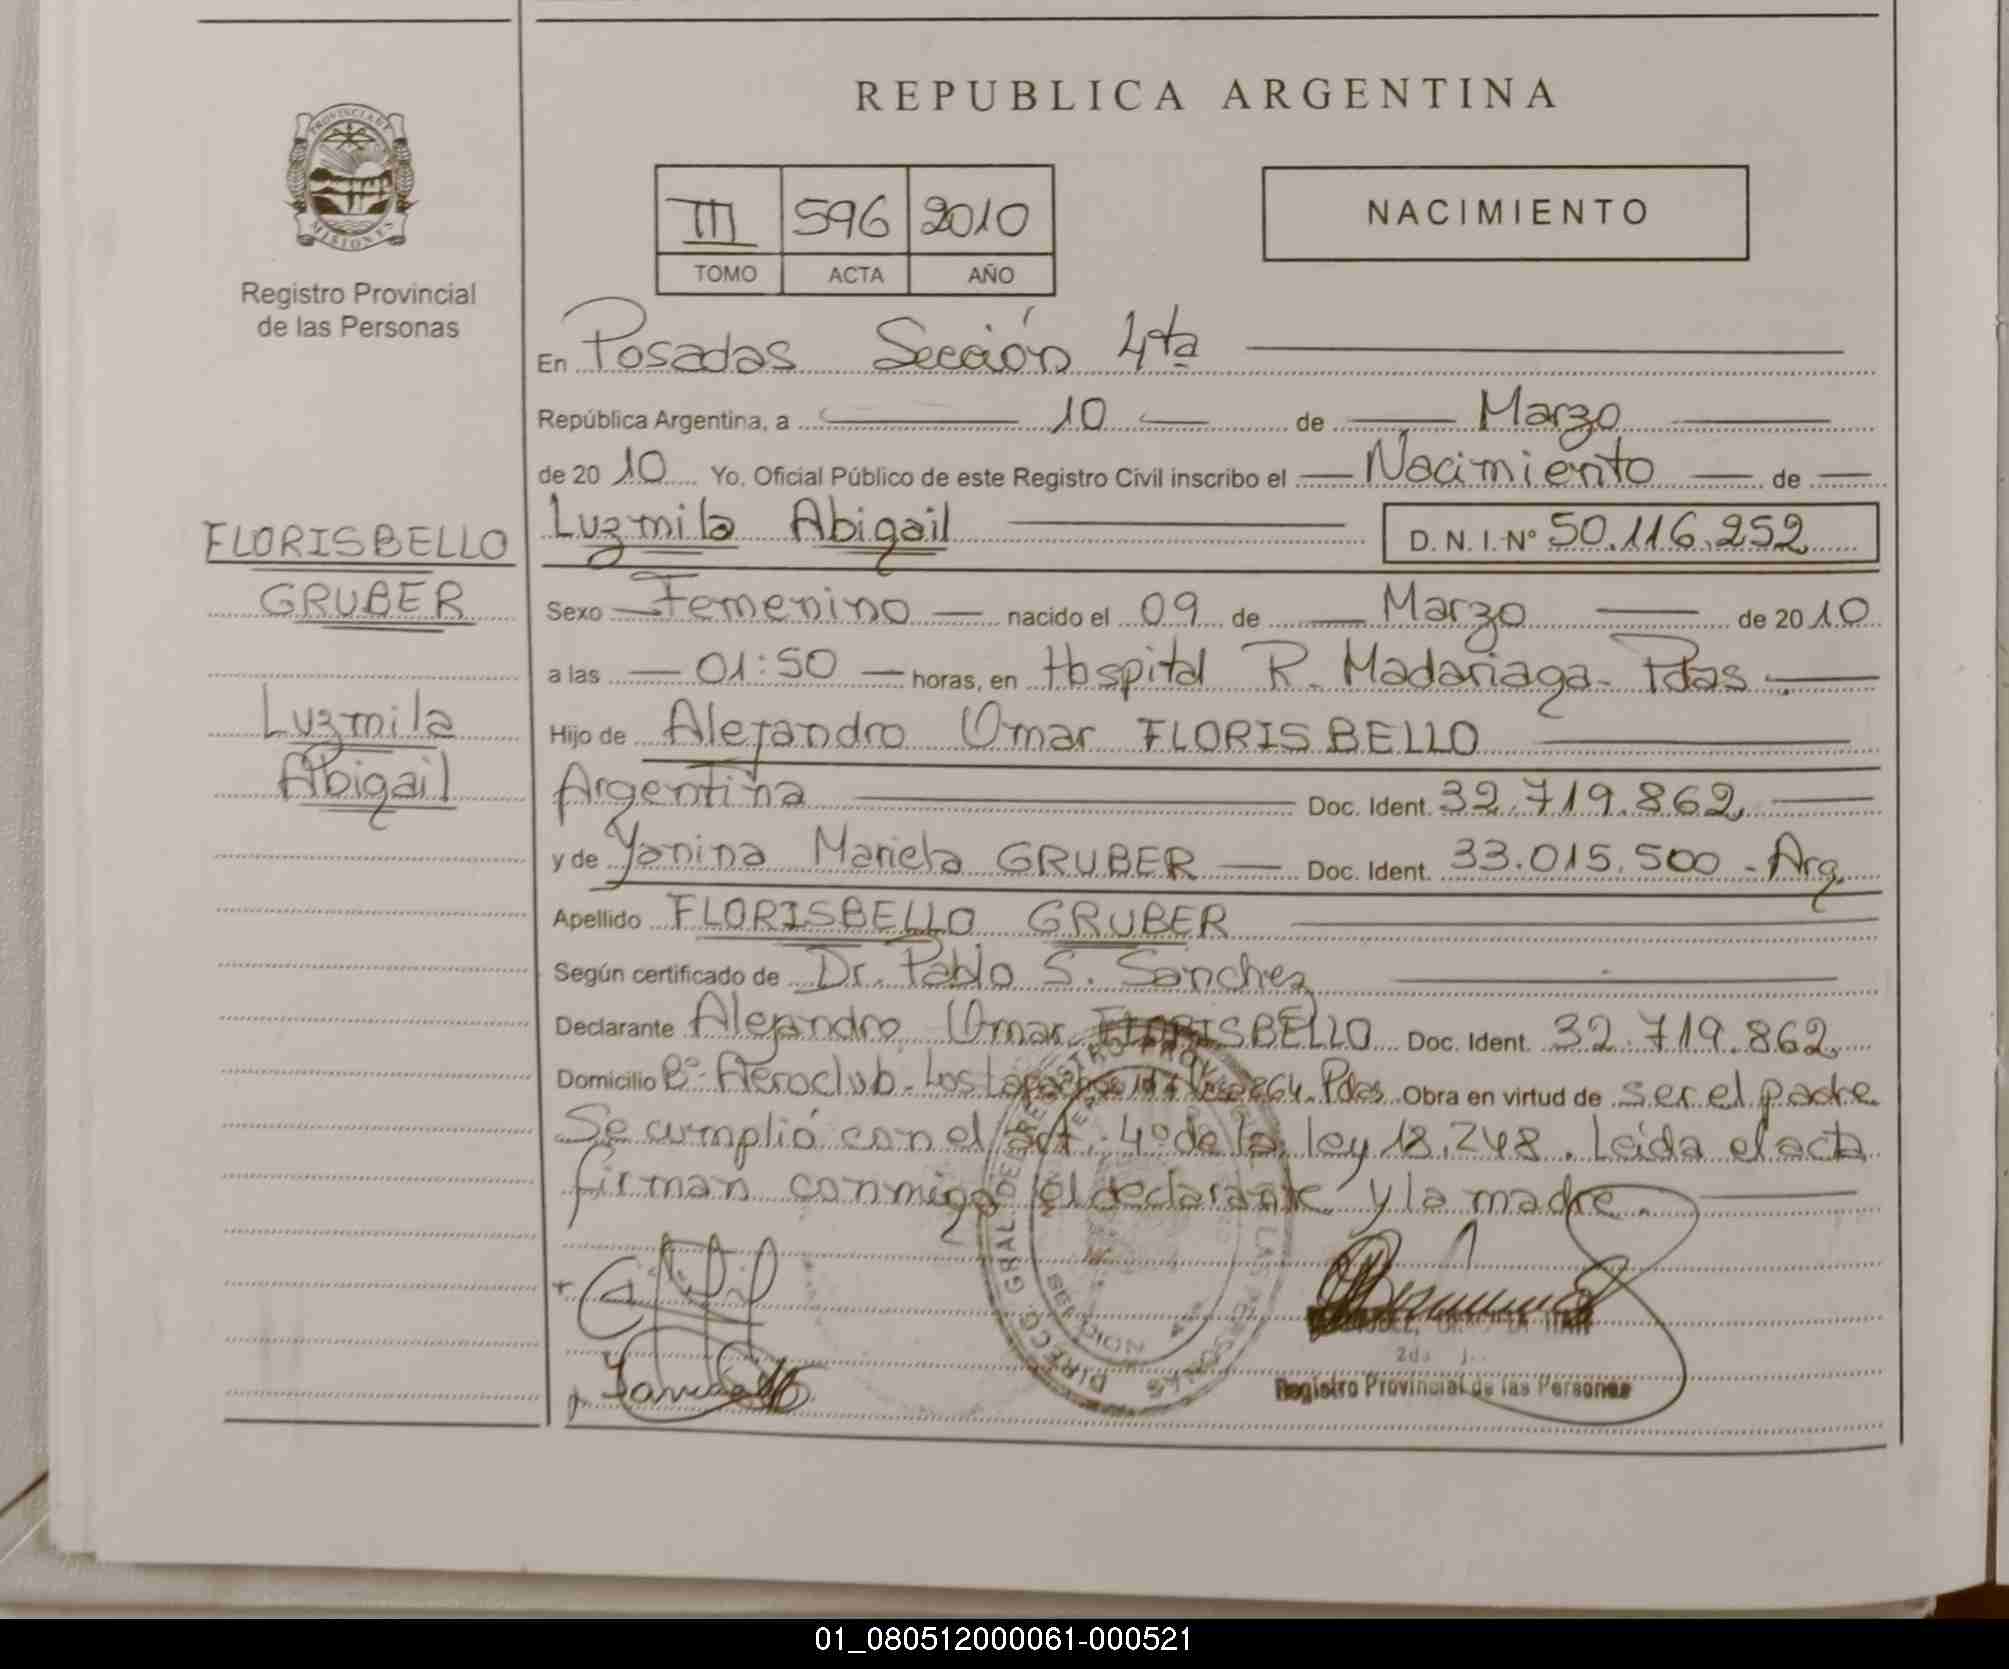 REPUBLICA ARGENTINA
PROVINCIA DE
MISIONES
Registro Provincial
de las Personas
III 596 2010
TOMO ACTA AÑO
NACIMIENTO
En Posadas Sección 4ta
República Argentina, a 10 de Marzo
de 20 10 Yo, Oficial Público de este Registro Civil inscribo el Nacimiento de
FLORISBELLO
GRUBER
Luzmila
Abigail
Luzmila Abigail D. N. I. Nº 50.116.252
Sexo Femenino nacido el 09 de Marzo de 20 10
a las 01:50 horas, en Hospital R. Madariaga - Pdas.
Hijo de Alejandro Omar FLORISBELLO
Argentina Doc. Ident. 32.719.862
y de Yanina Mariela GRUBER Doc. Ident. 33.015.500 - Arg.
Apellido FLORISBELLO GRUBER
Según certificado de Dr. Pablo S. Sanchez
Declarante Alejandro Omar FLORISBELLO Doc. Ident. 32.719.862
Domicilio Bº Aeroclub - Los Pdas Obra en virtud de ser el padre
Se cumplió con el art. 4º de la ley 18.248. Leida el acta
firman conmigo el declarante y la madre.
DIRECC. GRAL. DE REGISTRO LAS PERSONAS
Registro Provincial de las Personas
01_080512000061-000521